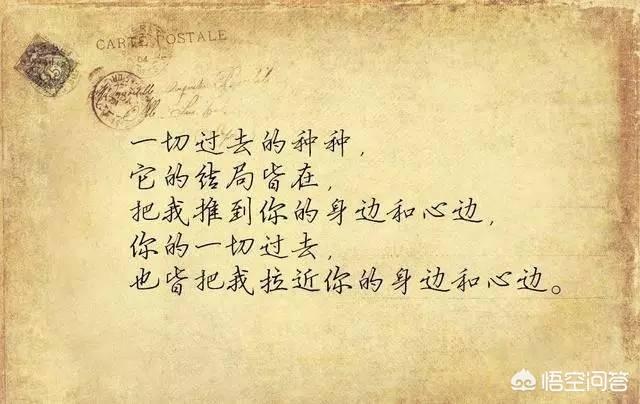 CARTE POSTALE
一切过去的种种，
它的结局皆在，
把我推到你的身边和心边，
你的一切过去，
也皆把我拉近你的身边和心边。
悟空问答